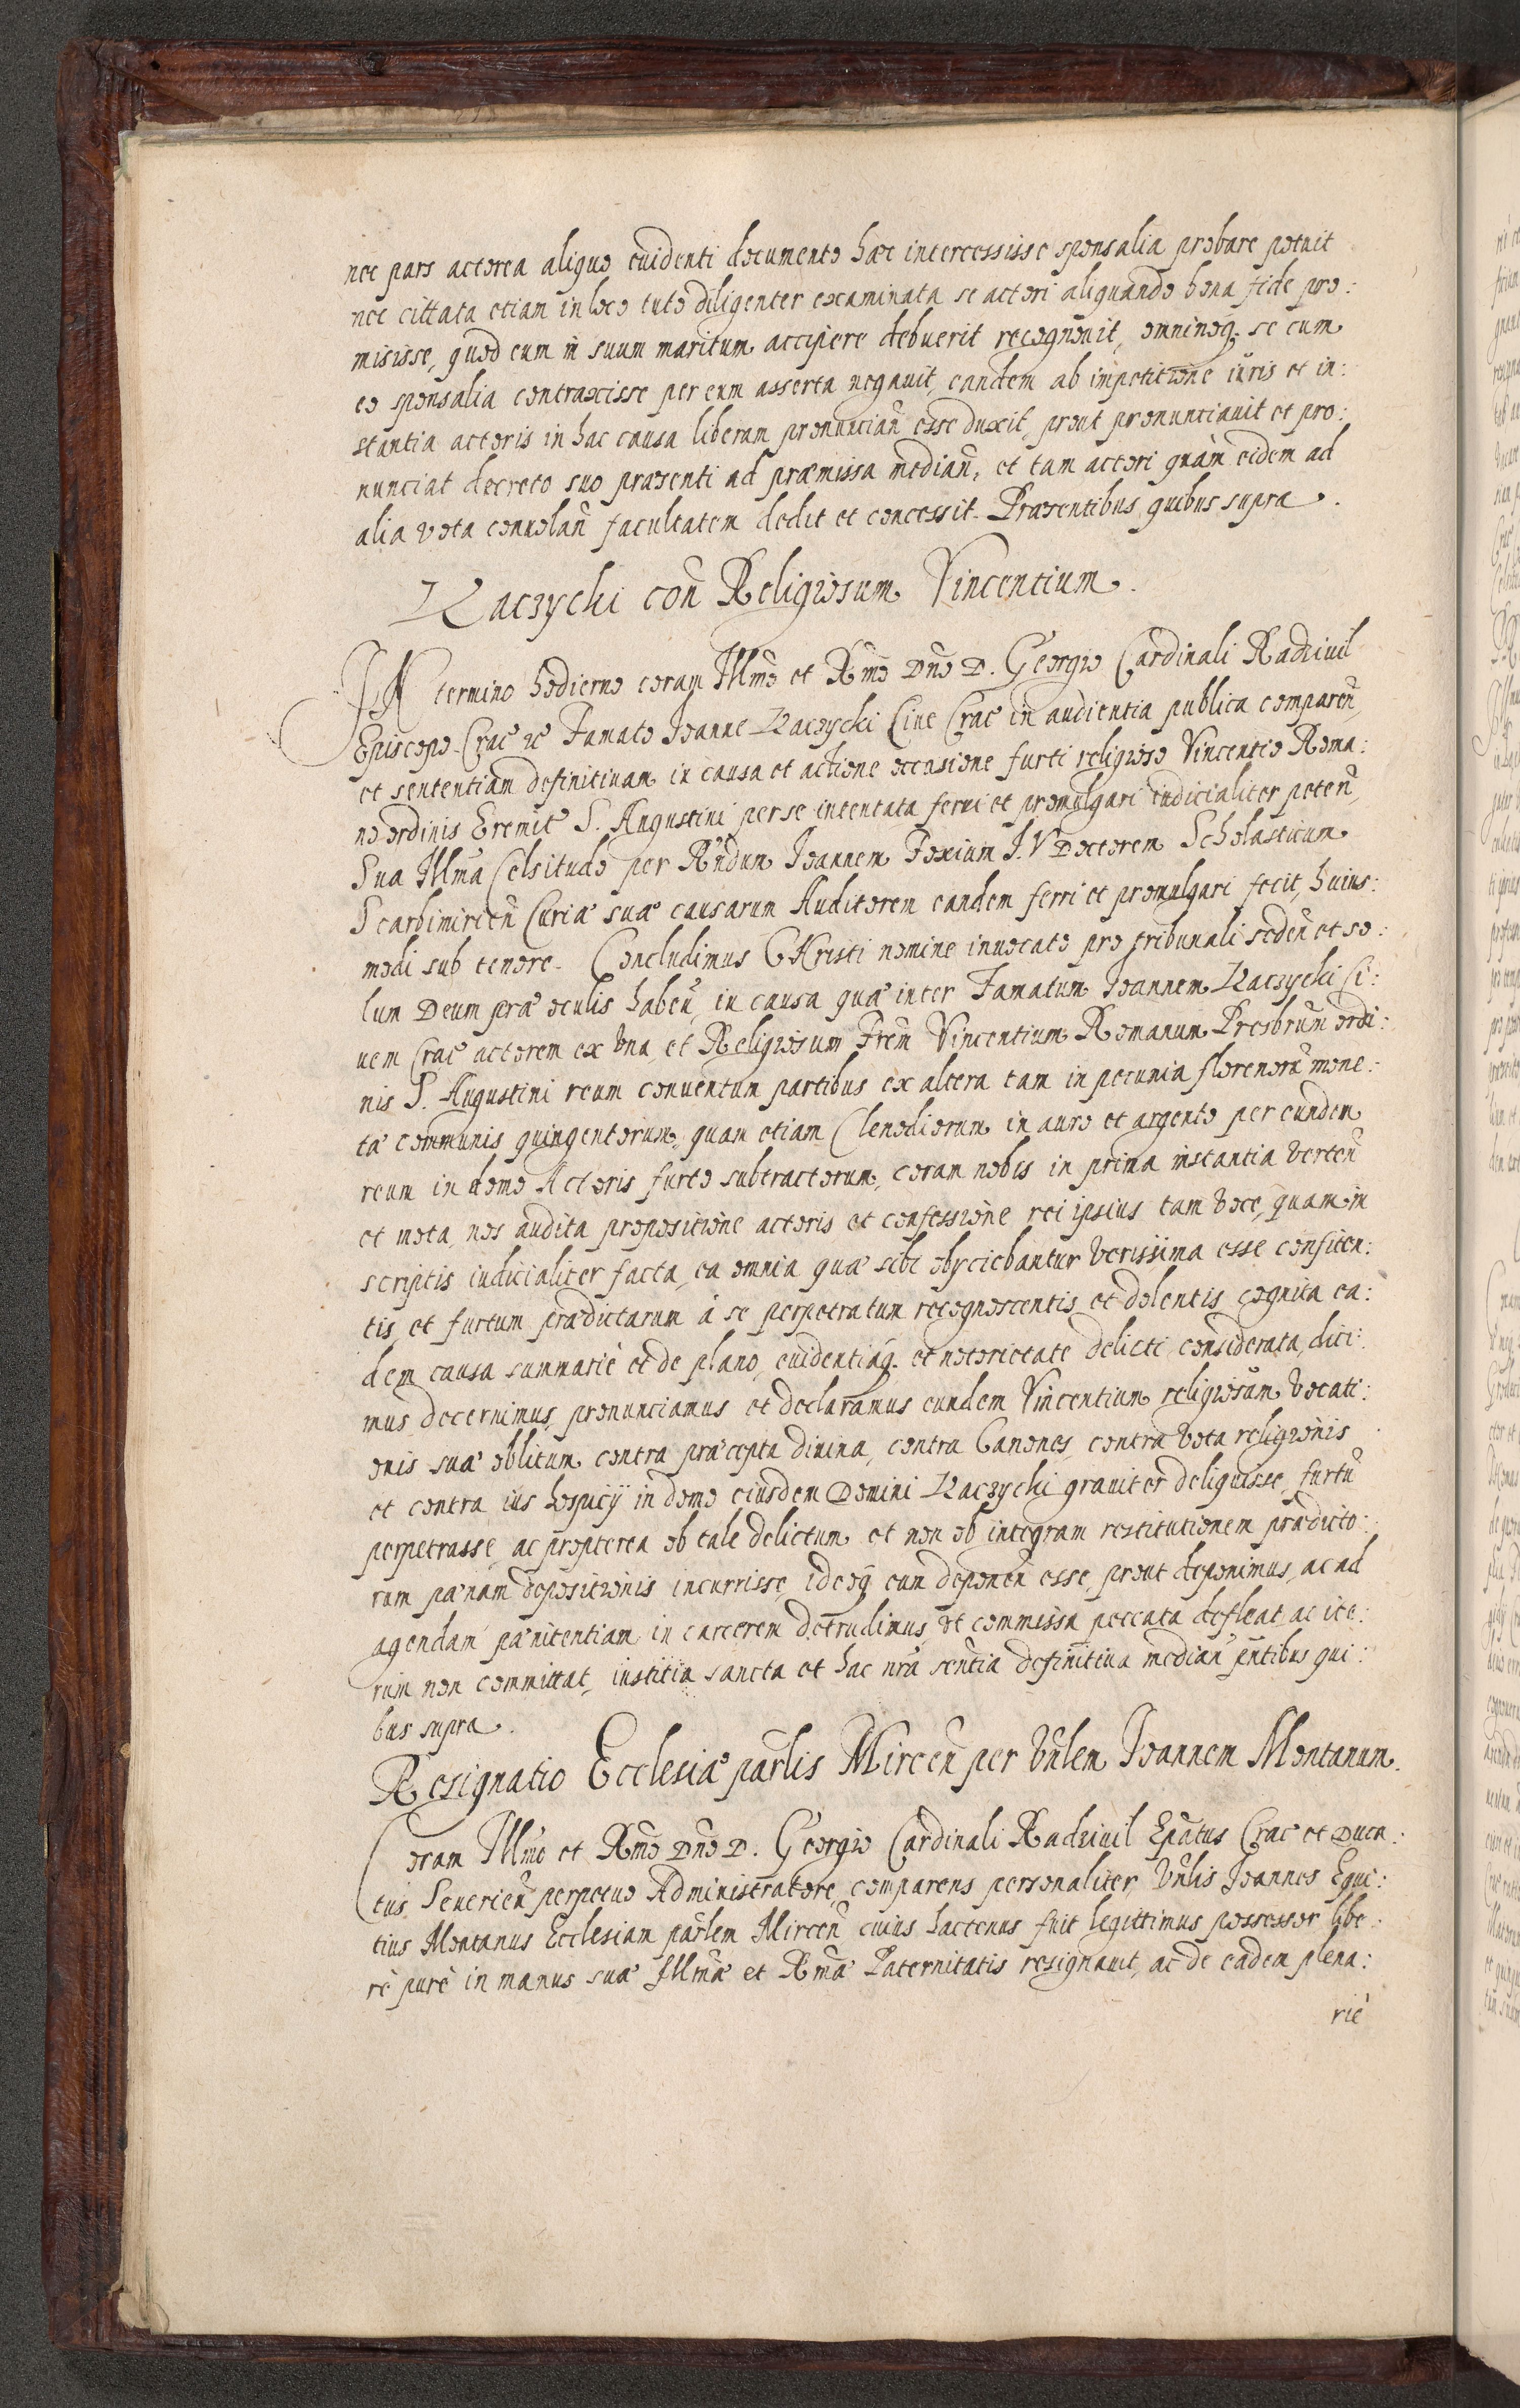 nec pars actorea aliquo euidenti documento hæc intercessisse sponsalia probare potuit
nec cittata etiam in loco tuto diligenter examinata se actori aliquando bona fide pro:
misisse, quod eum in suum maritum accipere debuerit recognouit, omninoq; se cum
eo sponsalia contraxisse per eum asserta negauit, eandem ab impetitione iuris et in:
stantia actoris in hac causa liberam pronuncian̄ esse duxit, prout pronunciauit et pro:
nunciat decreto suo præsenti ad præmissa median̄, et tam actori quàm eidem ad
alia vota conuolan̄ facultatem dedit et concessit. Præsentibus quibus supra.
Kaczychi con̄ Religiosum Vincentium.
IN termino hodierno coram Illmo et Rmo Dno D. Georgio Cardinali Radziuil
Episcopo Crac̄ &c Famato Joanne Kaczychi Ciue Crac̄ in audientia publica comparen̄,
et sententiam definitiuam in causa et actione occasione furti religioso Vincentio Roma:
no ordinis Eremit̄ S. Augustini per se intentata ferri et promulgari iudicialiter peten̄,
Sua Illma Celsitudo per Rndum Joannem Foxium J. V Doctorem Scholasticum
Scarbimirien̄ Curiæ suæ causarum Auditorem eandem ferri et promulgari fecit, huius:
modi sub tenore. Concludimus CHristi nomine inuocato pro tribunali seden̄ et so:
lum Deum præ oculis haben̄, in causa quæ inter Famatum Joannem Kaczychi Ci:
uem Crac̄ actorem ex vna, et Religiosum Frēm Vincentium Romanum Presbrūm ordi:
nis S. Augustini reum conuentum partibus ex altera tam in pecunia florenorū mone:
tæ communis quingentorum, quam etiam Clenodiorum in auro et argento per eundem
reum in domo Actoris furto subtractorum, coram nobis in prima instantia verten̄
et mota, nos audita propositione actoris et confessione rei ipsius tam voce, quam in
scriptis iudicialiter facta, ea omnia quæ sibi obyciebantur verissima esse confiten:
tis, et furtum prædictarum à se perpetratum recognoscentis, et dolentis, cognita ea:
dem causa summariè et de plano, euidentiaq; et notorietate delicti considerata, dici:
mus, decernimus, pronunciamus et declaramus eundem Vincentium religiosum vocati:
onis suæ oblitum contra præcepta diuina, contra Canones, contra vota religionis
et contra ius hospicij in domo eiusdem Domini Kaczychi grauiter deliquisse, furtū
perpetrasse, ac propterea ob tale delictum et non ob integram restitutionem prædicto:
rum pænam depositionis incurrisse, ideoq; eum deponen̄ esse, prout deponimus, ac ad
agendam pænitentiam in carcerem detrudimus, vt commissa peccata defleat, ac ite:
rum non committat, iustitia sancta et hac nrā sentia definitiua median̄ pn̄tibus qui:
bus supra.
Resignatio Ecclesiæ parlis Mircen̄ per Vnlem Joannem Montanum.
Coram Illmo et Rmo Dno D. Georgio Cardinali Radziuil Epātus Crac̄ et Duca:
tus Seuerien̄ perpetuo Administratore, comparens personaliter Vnlis Joannes Equi:
tius Montanus Ecclesiam parlem Mircen̄ cuius hactenus fuit legittimus possessor libe:
rè purè in manus suæ Illmæ et Rmæ Paternitatis resignauit, ac de eadem plena:
riè